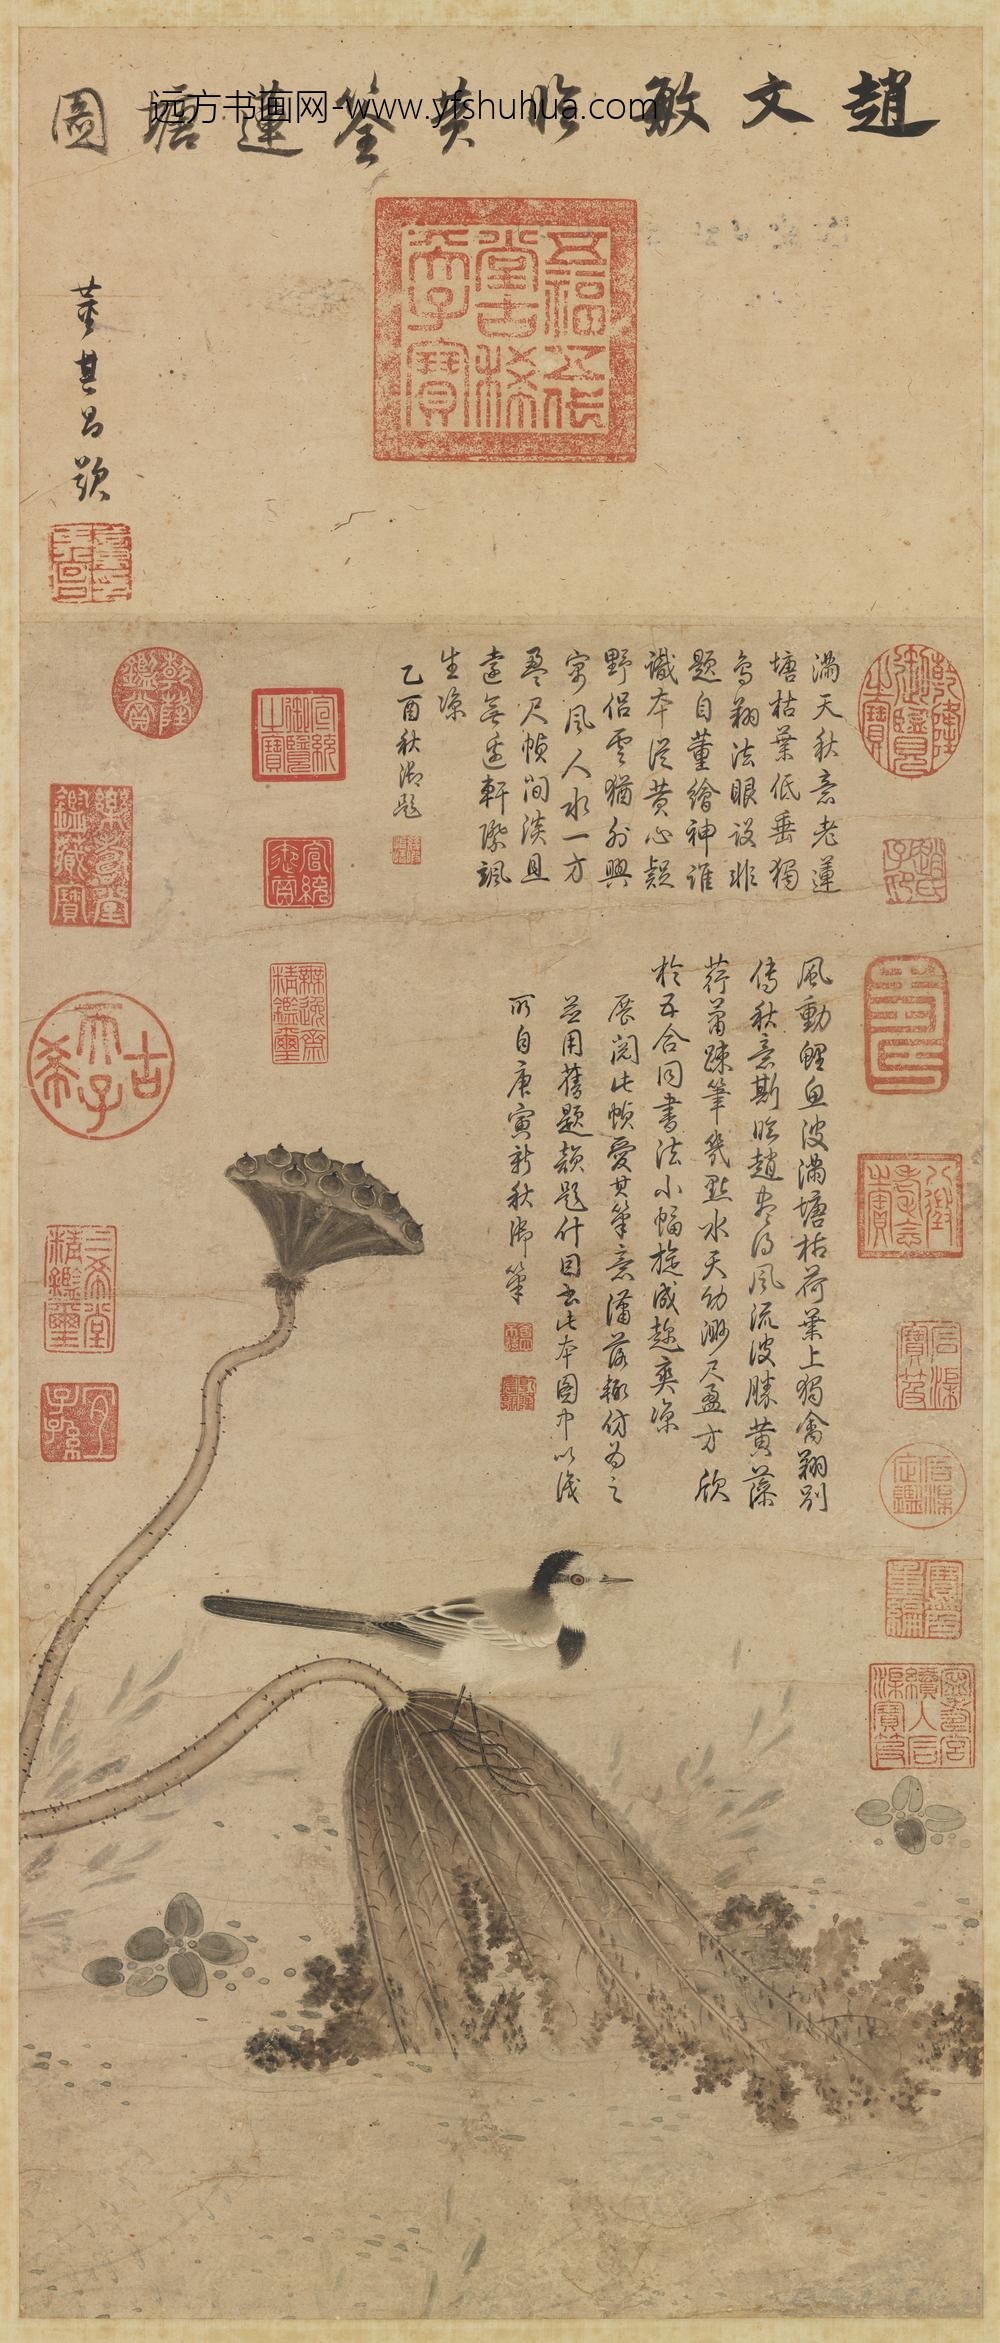 趙文敏臨黃筌蓮塘圖
远方书画网-www.yfshuhua.com
董其昌題
五福五代
堂古稀
天子寶
滿天秋意老蓮
塘枯葉低垂獨
鳥翔法眼設非
題自董繪神誰
識本從黃心疑
野侶雲猶外興
寄風人水一方
盈尺幀間淡且
遠無邊軒際颯
生涼
乙酉秋御題
風動鯉魚波滿塘枯荷葉上獨禽翔別
傳秋意斯臨趙尤得風流波勝黃藻
荇蕭疎筆幾點水天幼渺尺盈方欣
於五合同書法小幅旋成趁爽涼
展閱此幀愛其筆意瀟落輙仿為之
並用舊題韻題什因書此本圖中以識
所自庚寅新秋御筆
乾隆御覽之寶
乾隆鑑賞
宣統御覽之寶
樂壽堂鑑藏寶
無逸齋精鑑璽
古希天子
壽
八徵耄念之寶
三希堂精鑑璽
宜子孫
石渠寶笈
石渠定鑑
寶笈重編
寧壽宮續入石渠寶笈